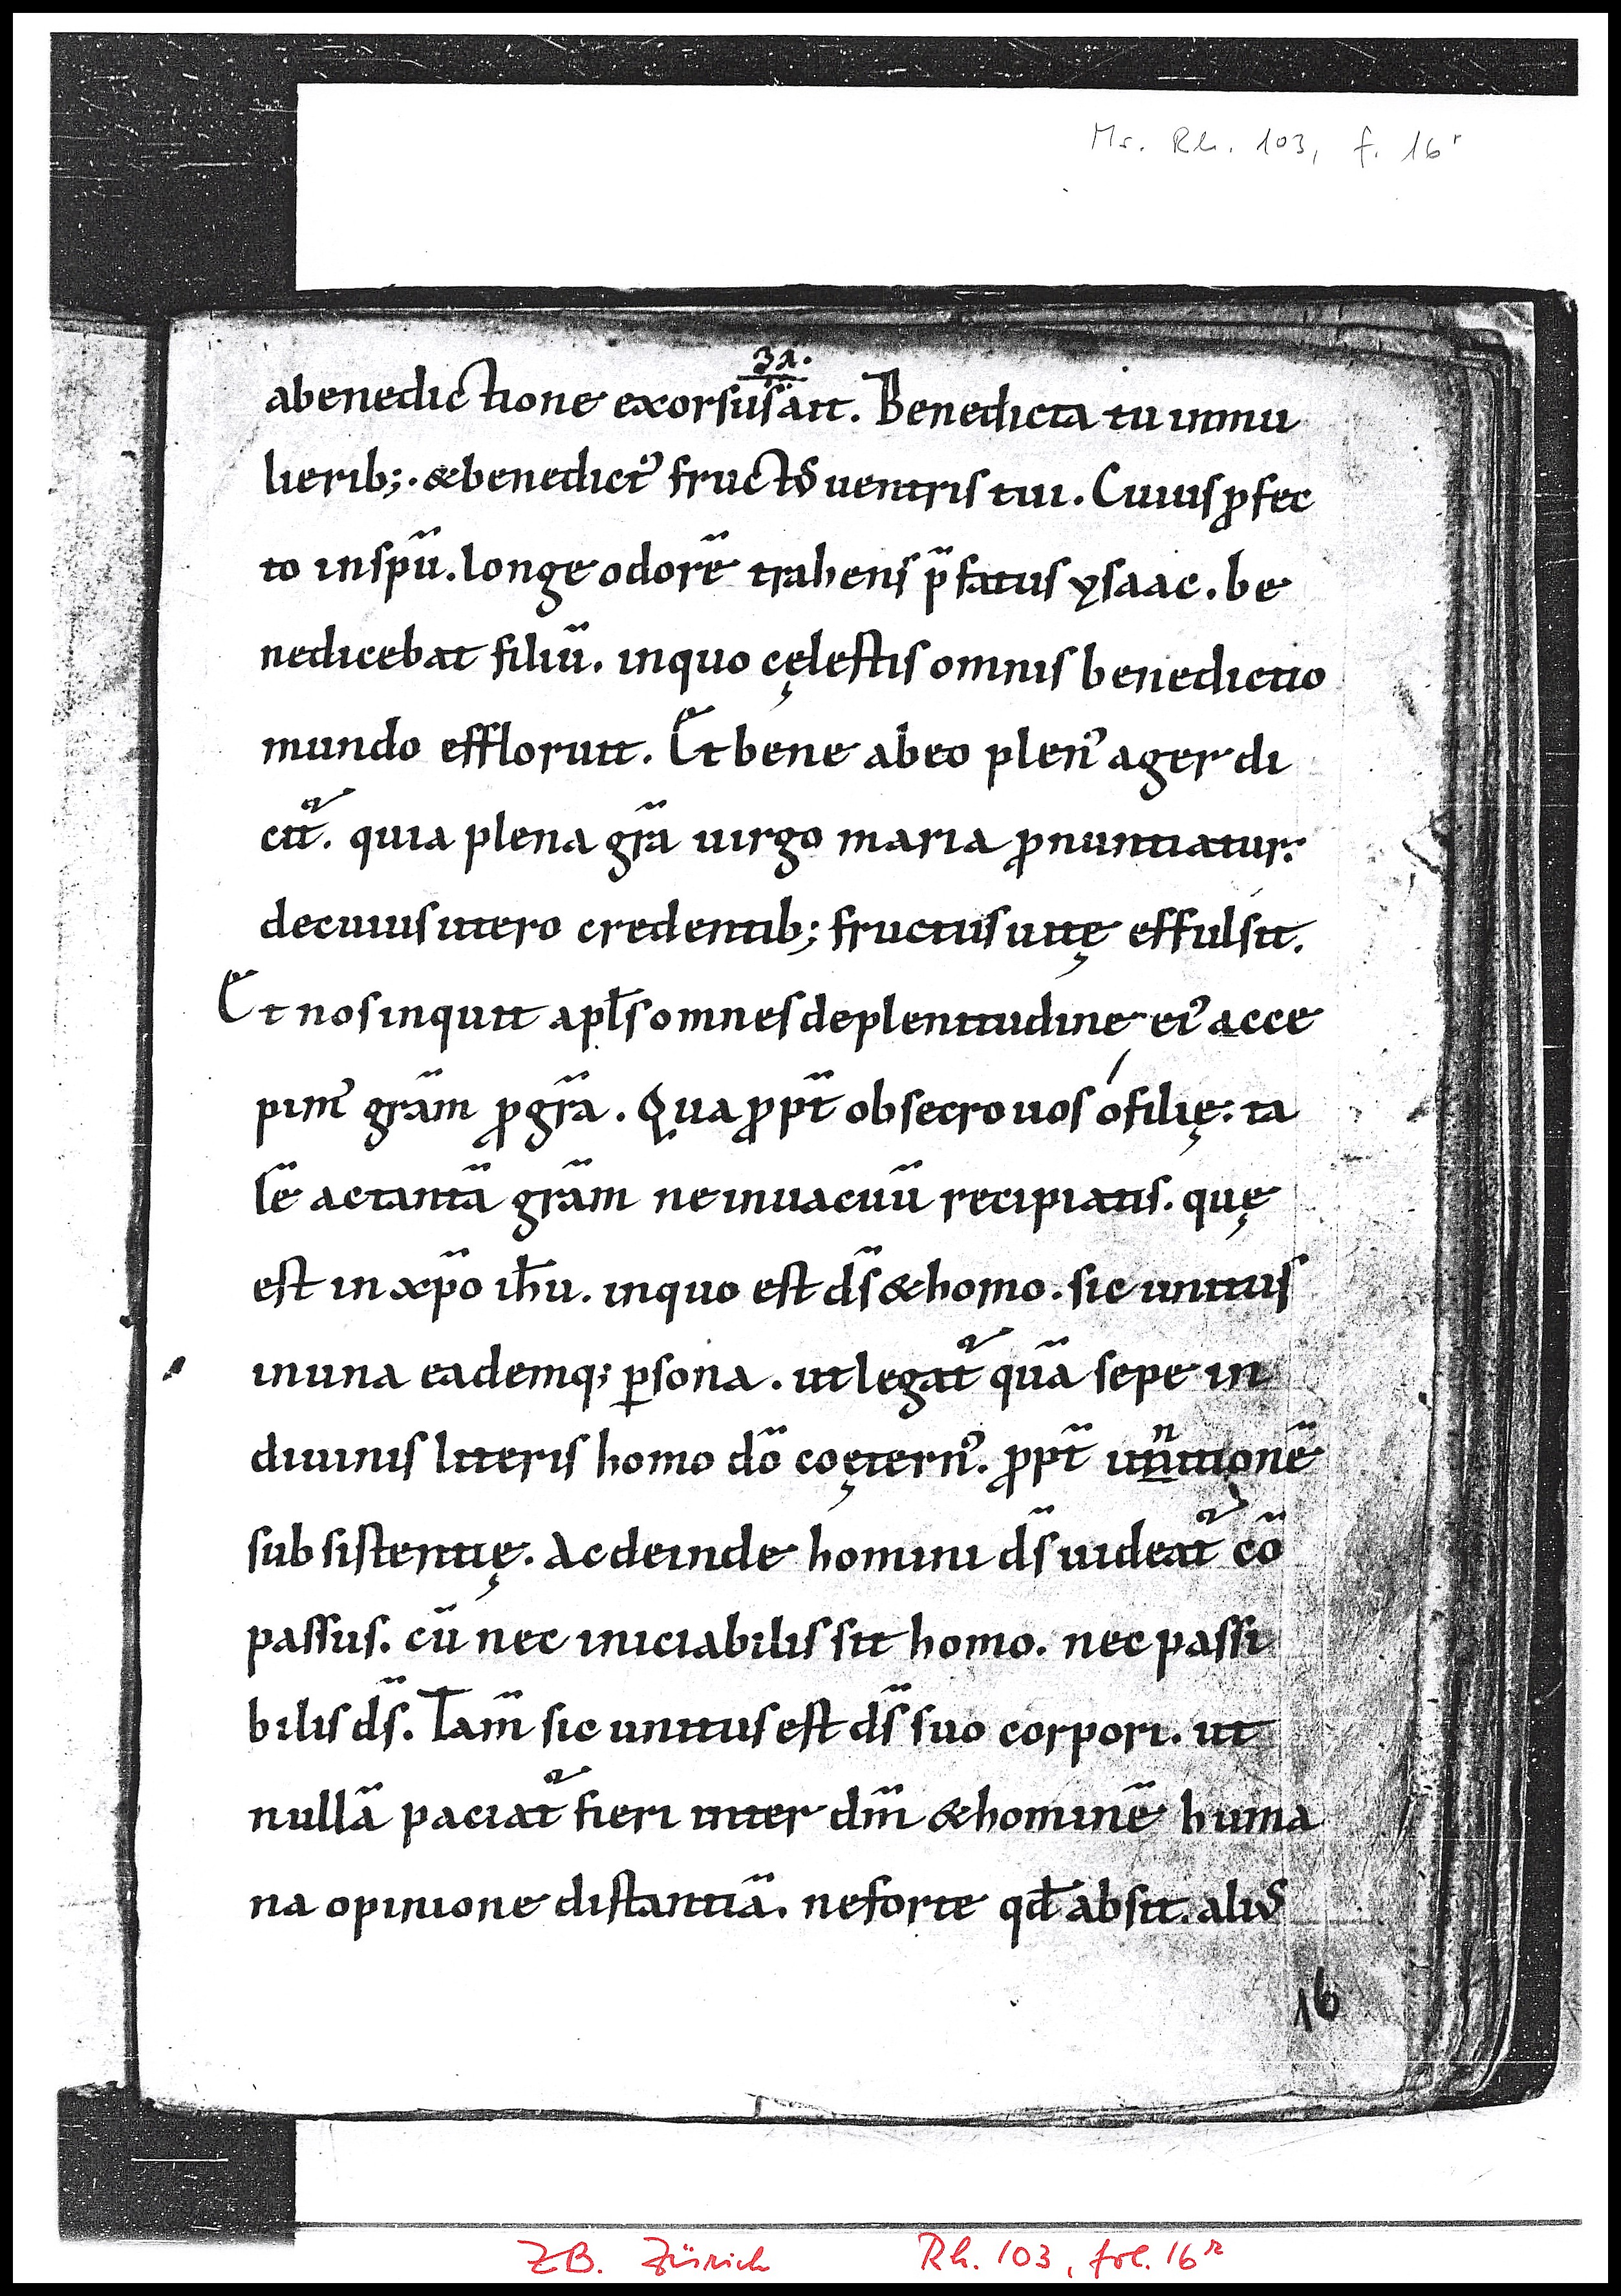 Ms. Rh. 103, f. 16r
31.
abenedictione exorsus ait. Benedicta tu inmu
lierib;. &benedict᾽ fructus uentris tui. Cuius ꝓfec
to inspū. longe odorē trahens p̄fatus ysaac. be
nedicebat filiū. inquo cęlestis omnis benedictio
mundo effloruit. Et bene abeo plen᾽ ager di
cit̄. quia plena grā uirgo maria ꝓnuntiatur.
decuius utero credentib; fructus uitę effulsit.
Et nos inquit apl̄s omnes deplenitudine ei᾽ acce
pim᾽ grām ꝓgrā. Quaꝓpt̄ obsecro uos ófilię. ta
lē actantā grām neinuacuū recipiatis. quę
est in xp̄o ih̄u. inquo est ds̄ &homo. sic unitus
inuna eademq; ꝑsona. utlegat̄ quā sepe in
diuinis literis homo dō coęetern᾽. ꝓpt̄ unitionē
subsistentię. Ac deinde homini ds̄ uideat̄ cō
passus. cū nec iniciabilis sit homo. nec passi
bilis ds̄. Tam̄ sic unitus est ds̄ suo corpori. ut
nullā paciat̄ fieri inter dm̄ &hominē huma
na opinione distantiā. neforte qd̄ absit. alius
16
ZB. Zürich Rh. 103, fol. 16r